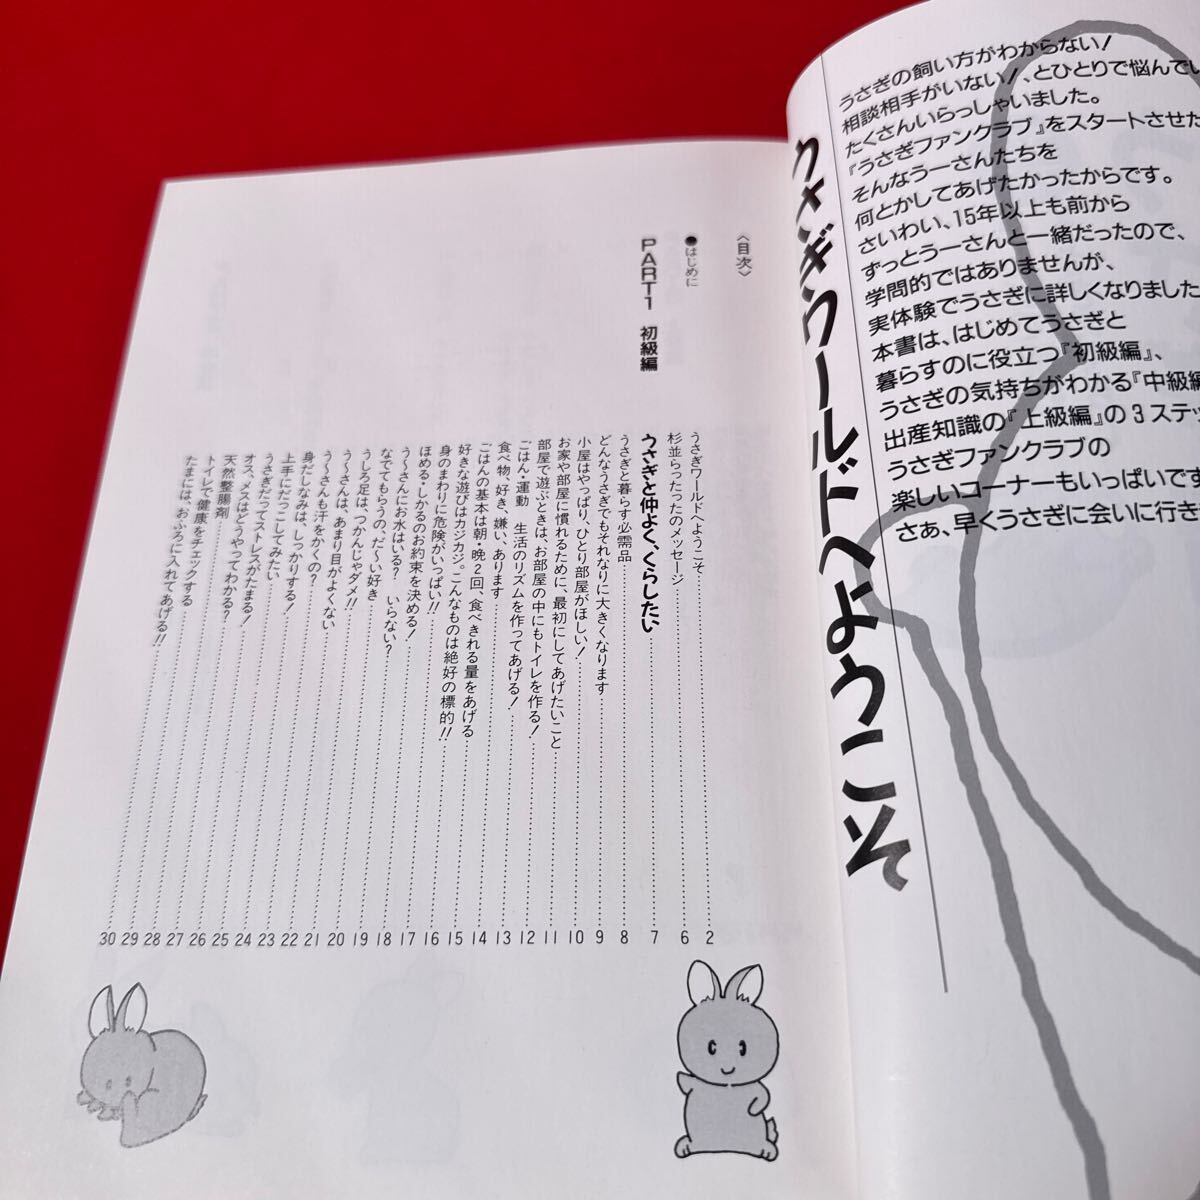 うさぎの飼い方がわからない!
相談相手がいない!、とひとりで悩んでい
たくさんいらっしゃいました。
『うさぎファンクラブ』をスタートさせた
そんなうーさんたちを
何とかしてあげたかったからです。
さいわい、15年以上も前から
ずっとうーさんと一緒だったので、
学問的ではありませんが、
実体験でうさぎに詳しくなりました
本書は、はじめてうさぎと
暮らすのに役立つ『初級編』、
うさぎの気持ちがわかる『中級編
出産知識の『上級編』の3ステッ
うさぎファンクラブの
楽しいコーナーもいっぱいです
さあ、早くうさぎに会いに行き
うさぎワールドへようこそ
〈目次〉
●はじめに
PART1 初級編
うさぎワールドへようこそ……2
杉並らったったのメッセージ……6
うさぎと仲よく、くらしたい……7
うさぎと暮らす必需品……8
どんなうさぎでもそれなりに大きくなります……9
小屋はやっぱり、ひとり部屋がほしい!……10
お家や部屋に慣れるために、最初にしてあげたいこと……11
部屋で遊ぶときは、お部屋の中にもトイレを作る!……12
ごはん・運動 生活のリズムを作ってあげる!……13
食べ物、好き、嫌い、あります……14
ごはんの基本は朝・晩2回、食べきれる量をあげる……15
好きな遊びはカジカジ。こんなものは絶好の標的!!……16
身のまわりに危険がいっぱい!!……17
ほめる・しかるのお約束を決める!……18
う〜さんにお水はいる? いらない?……19
なでてもらうの、だ〜い好き……20
うしろ足は、つかんじゃダメ!!……21
う〜さんは、あまり目がよくない……22
う〜さんも汗をかくの?……23
身だしなみは、しっかりする!……24
上手にだっこしてみたい……25
うさぎだってストレスがたまる!……26
オス、メスはどうやってわかる?……27
天然整腸剤……28
トイレで健康をチェックする……29
たまには、おふろに入れてあげる!!……30